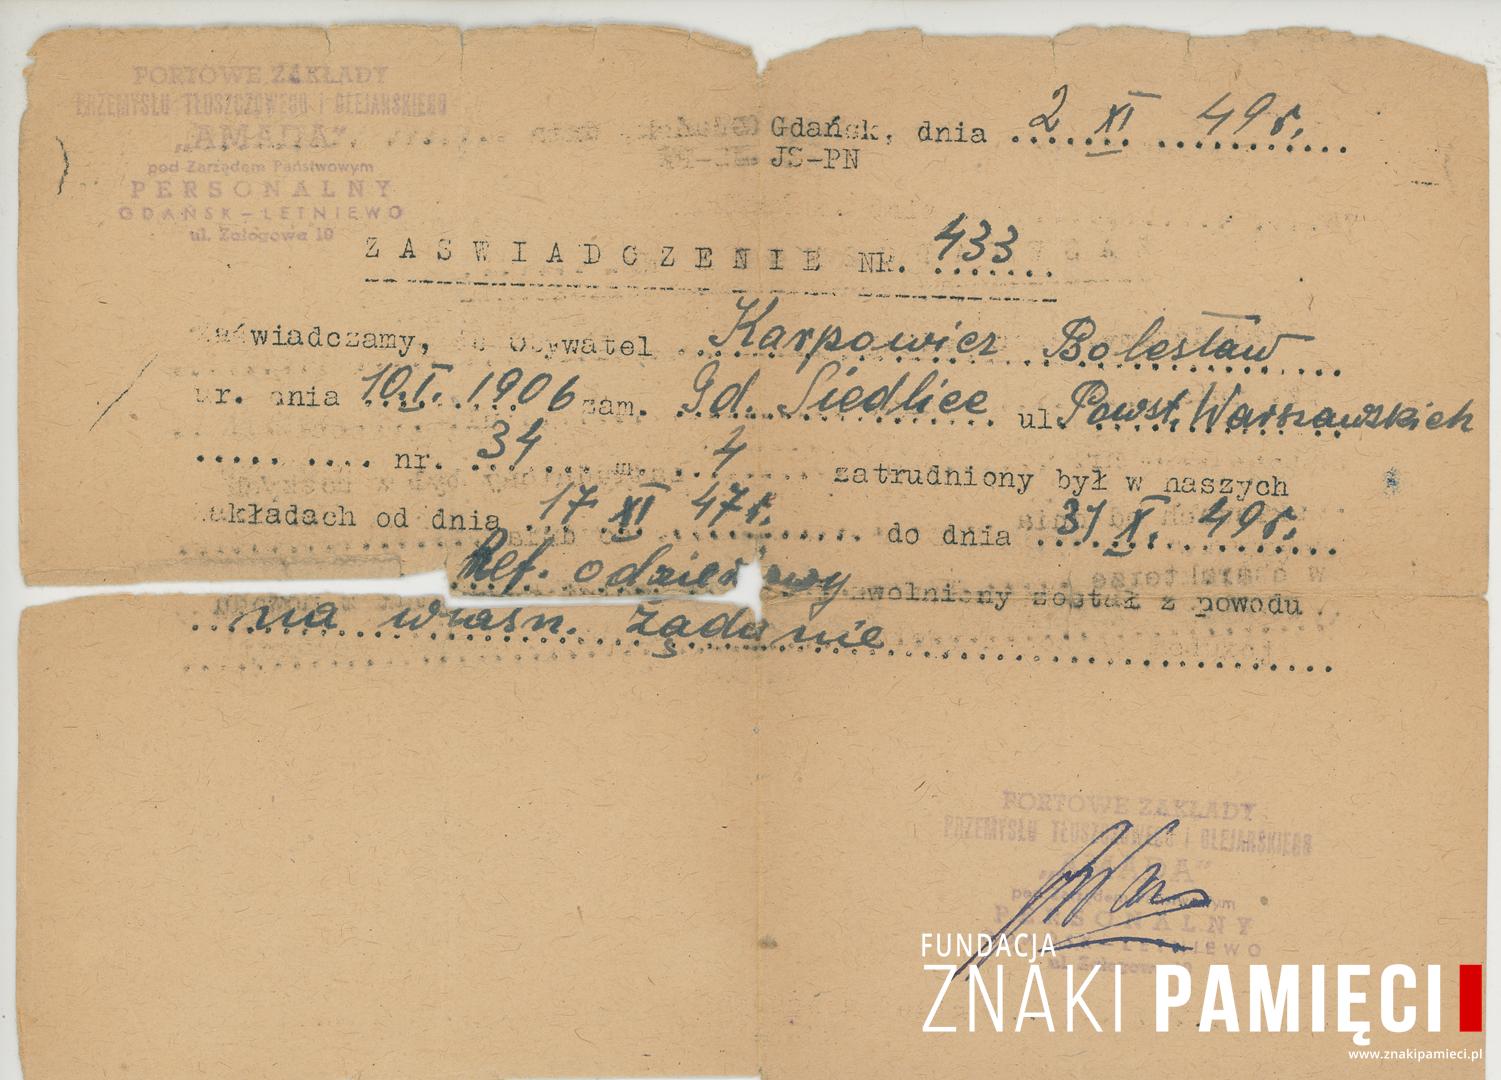 PORTOWE ZAKŁADY
PRZEMYSŁU TŁUSZCZOWEGO I OLEJARSKIEGO
„AMADA”
pod Zarządem Państwowym
PERSONALNY
GDAŃSK-LETNIEWO
ul. Załogowa 10
Gdańsk, dnia 2 XI 49 r.
JS-PN
ZAŚWIADCZENIE NR. 433
Zaświadczamy, że Obywatel Karpowicz Bolesław
ur. dnia 10.I. 1906 zam. Gd. Siedlice ul. Powst. Warszawskich
nr. 34 m. 4 zatrudniony był w naszych
Zakładach od dnia 17 XI 47 r. do dnia 31 X. 49 r.
Ref. odzieżowy zwolniony został z powodu
na własn. żądanie
PORTOWE ZAKŁADY
PRZEMYSŁU TŁUSZCZOWEGO I OLEJARSKIEGO
„AMADA”
pod Zarządem Państwowym
PERSONALNY
GDAŃSK-LETNIEWO
ul. Załogowa 10
FUNDACJA
ZNAKI PAMIĘCI
www.znakipamieci.pl